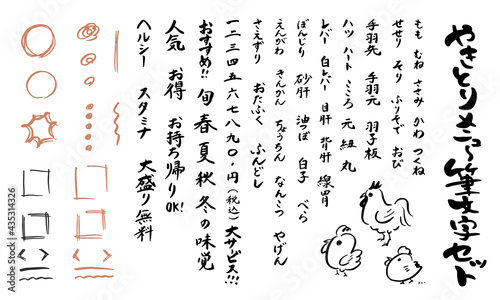 やきとりメニュー筆文字セット
もも むね ささみ かわ つくね
せせり そり ふりそで おび
手羽先 手羽元 羽子板
ハツ ハート こころ 元 紐 丸
レバー 白レバー 目肝 背肝 線胃
ぼんじり 砂肝 油つぼ 白子 べら
えんがわ きんかん ちょうちん なんこつ やげん
さえずり おたふく ふんどし
一二三四五六七八九〇.円(税込)大サービス!!!
おすすめ!! 旬 春 夏 秋 冬の味覚
人気 お得 お持ち帰りOK!
ヘルシー スタミナ 大盛り無料
Adobe Stock | #435314326
Adobe Stock